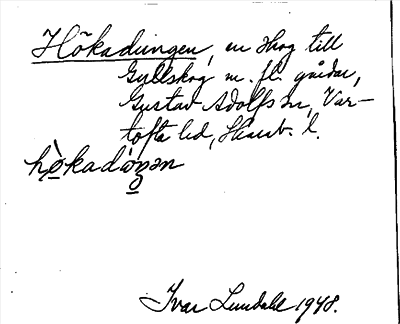 Hökadungen, en skog till
Gyllskog m. fl. gårdar,
Gustav Adolfs sn, Var-
tofta hd, Skarab. l.
hökadoŋən
Ivar Lundahl 1948.